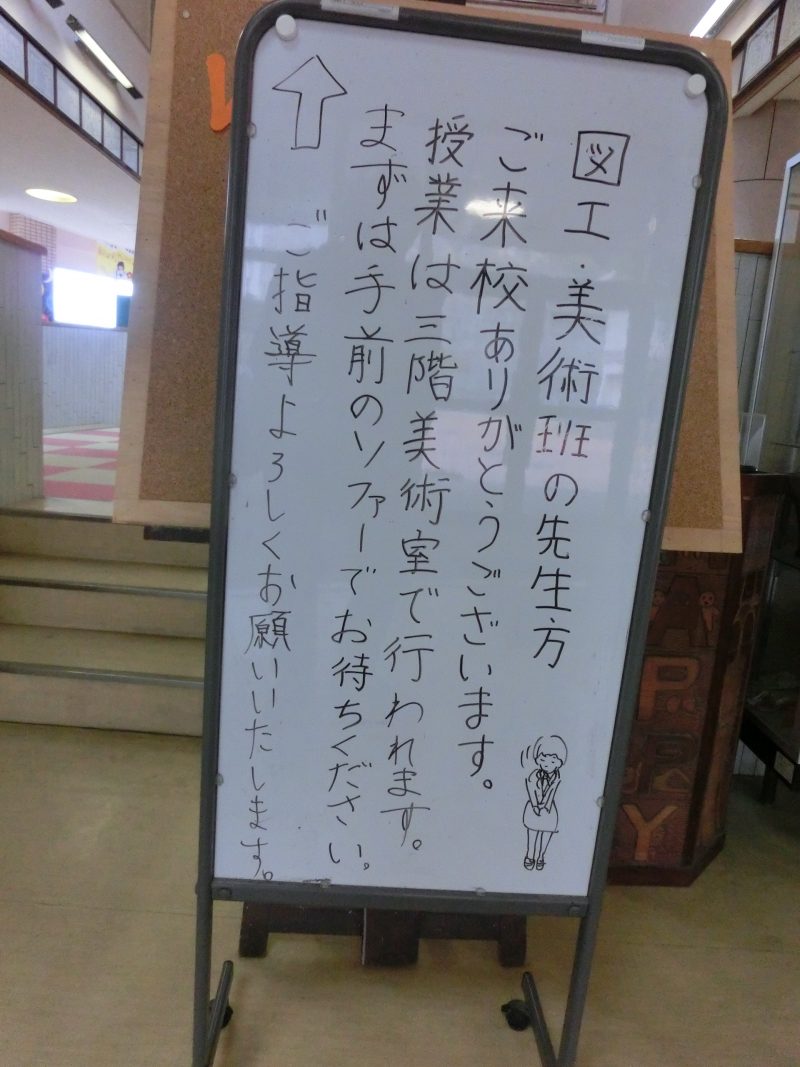 図工・美術班の先生方
ご来校ありがとうございます。
授業は三階美術室で行われます。
まずは手前のソファーでお待ちください。
ご指導よろしくお願いいたします。
P
P
Y